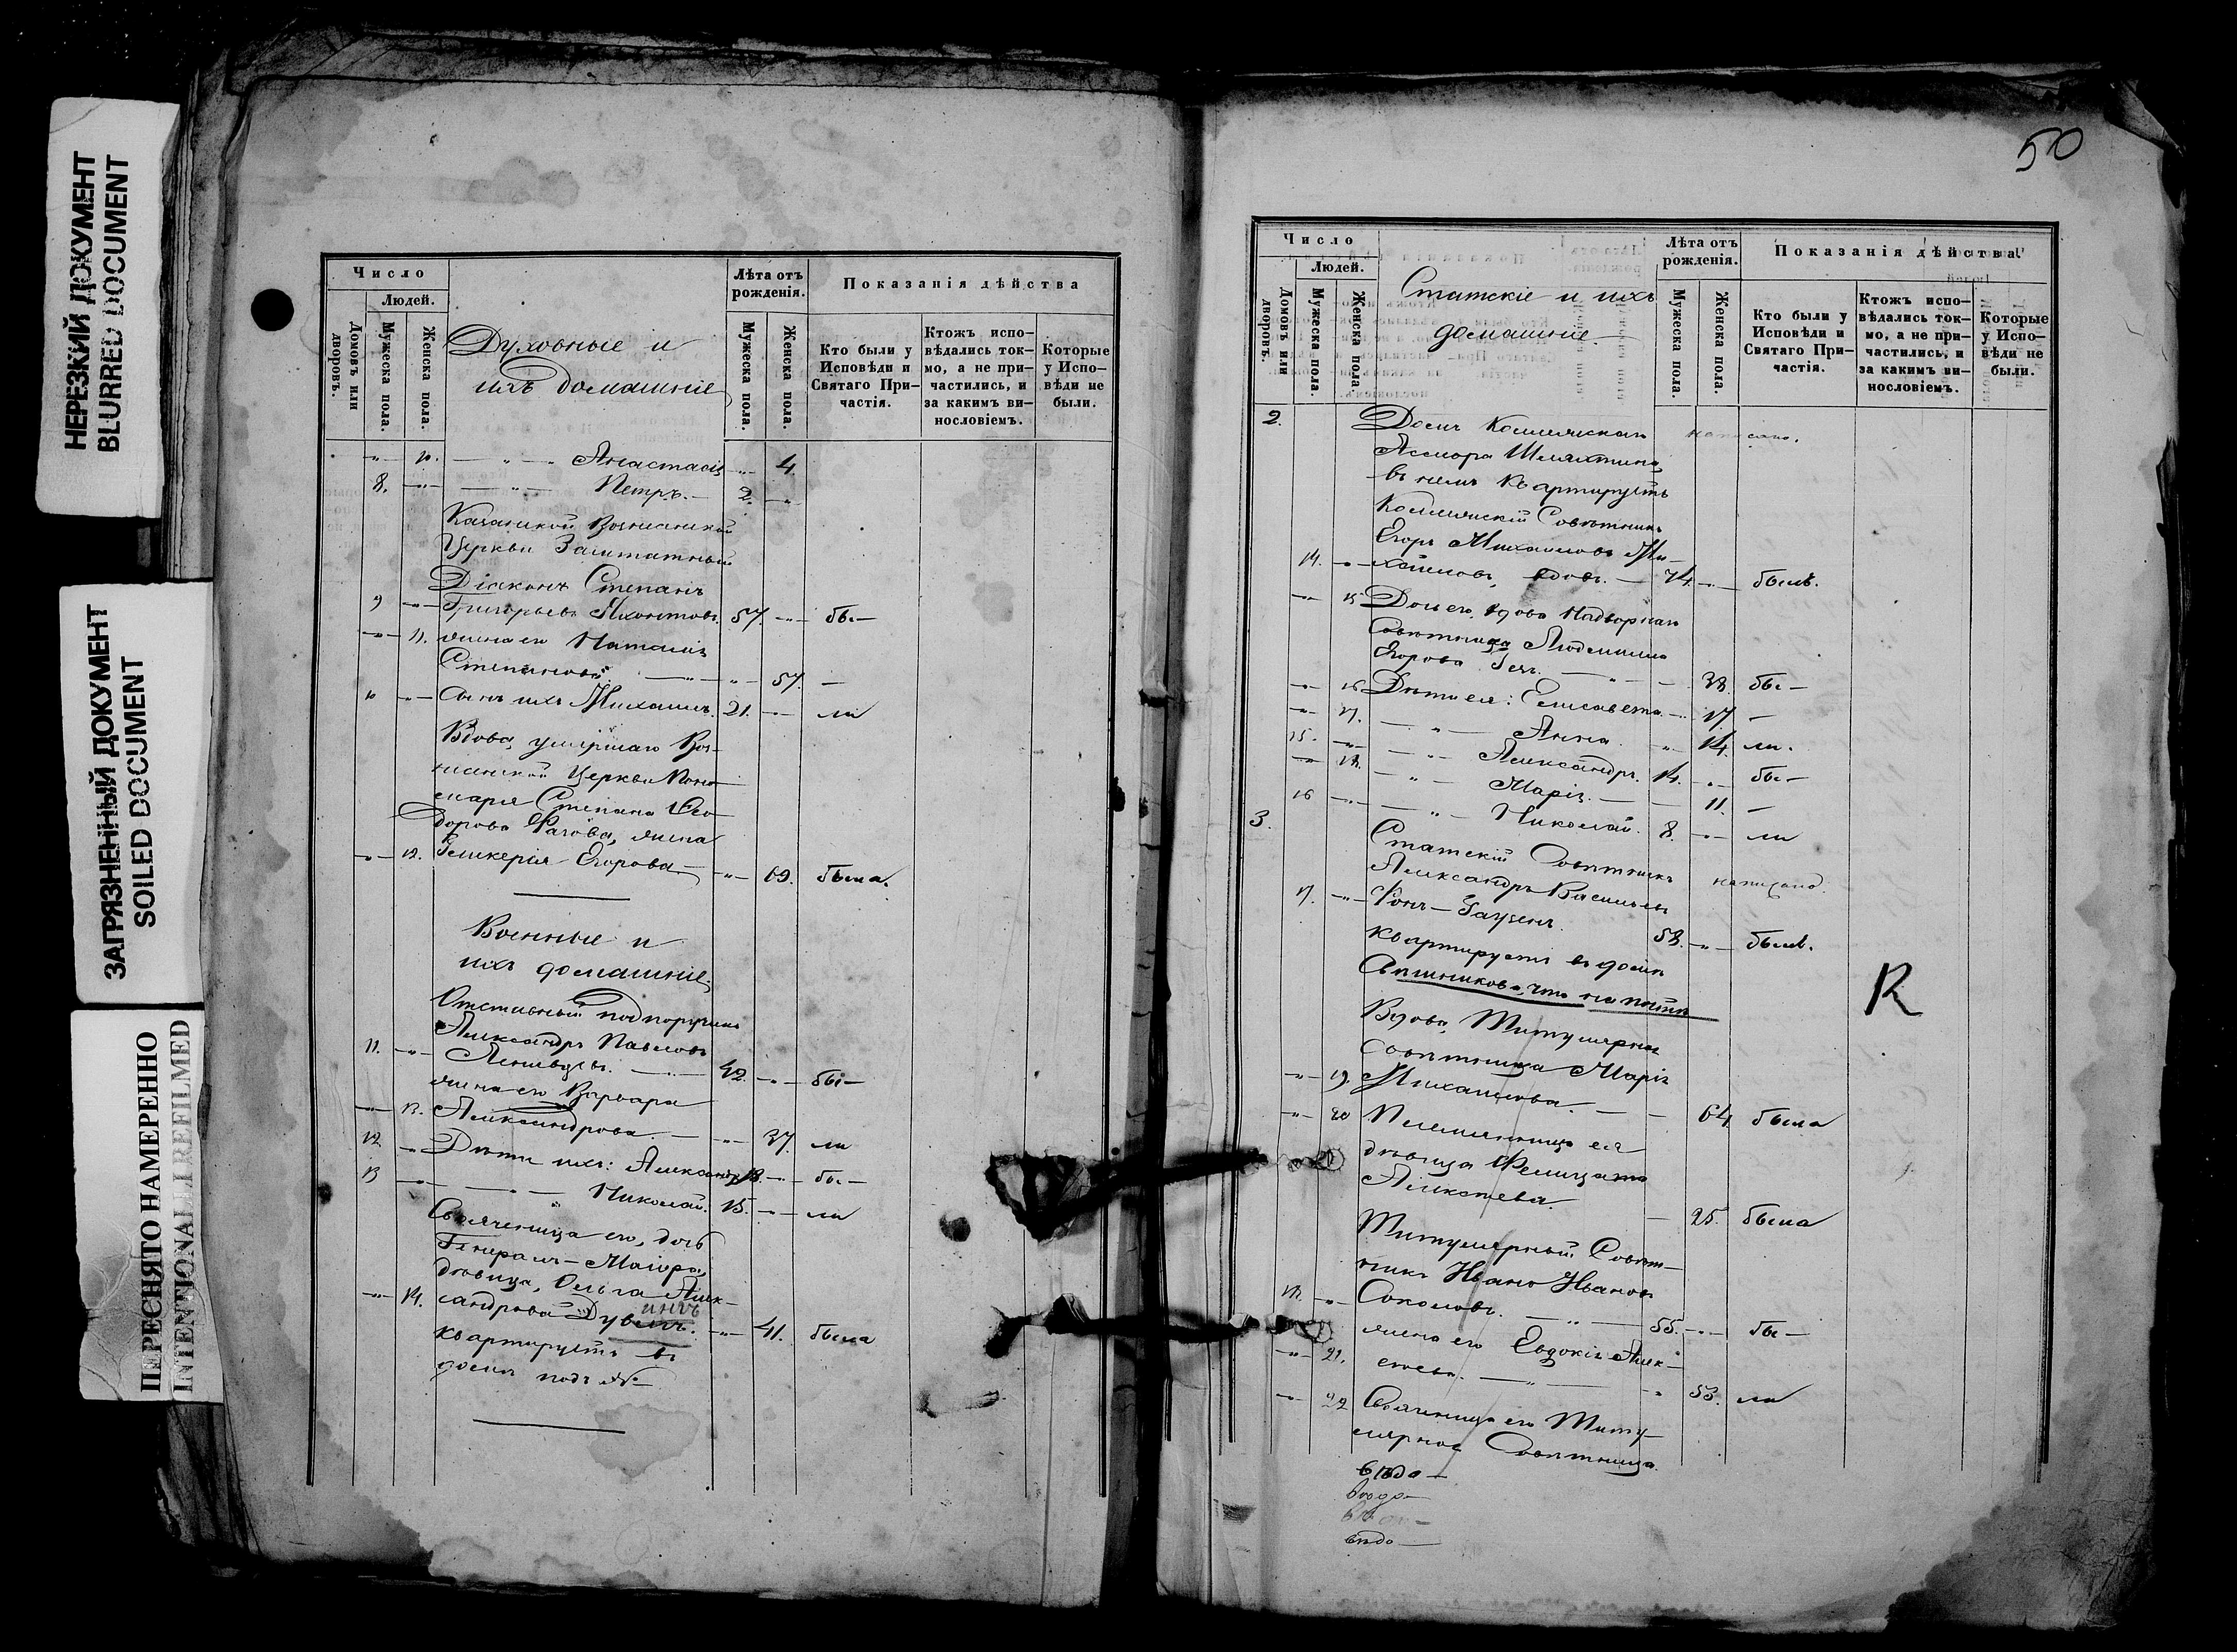 НЕРЕЗКИЙ ДОКУМЕНТ
BLURRED DOCUMENT
ЗАГРЯЗНЕННЫЙ ДОКУМЕНТ
SOILED DOCUMENT
ПЕРЕСНЯТО НАМЕРЕННО
INTENTIONALLI REFILMED
Число
Людей.
Домовъ или дворовъ.
Мужеска пола.
Женска пола.
Духовные и
ихъ домашніе
Лѣта отъ рожденія.
Мужеска пола.
Женска пола.
Показанія дѣйства
Кто были у Исповѣди и Святаго Причастія.
Ктожъ исповѣдались токмо, а не причастились, и за какимъ винословіемъ.
Которые у Исповѣди не были.
10. Анастасія 4.
8. Петръ. 2.
Казанской Вознесенской
Церкви Заштатный
Діаконъ Степанъ
9 Григорьевъ 57. бы—
11. жена его Наталія
Степанова 57. —
10 Сынъ ихъ Михаилъ. 21. ли
Вдова, умершаго Воз-
несенской Церкви Поно-
маря Степана Ѳео-
дорова жена
12. Гликерія Егорова 69. была.
Военные и
ихъ домашніе
Отставный подпоручикъ
Александръ Павловъ
11. 42. бы—
жена его Варвара
13. Александрова. 37. ли
12 Дѣти ихъ: Александръ 18. бы—
13 Николай. 15. ли
Свояченица его, дочь
Генералъ-Маіора,
дѣвица, Ольга Алек-
14. сандрова 41. была
квартируетъ въ
домѣ подъ №
50
Число
Людей.
Домовъ или дворовъ.
Мужеска пола.
Женска пола.
Статскіе и ихъ
домашніе.
Лѣта отъ рожденія.
Мужеска пола.
Женска пола.
Показанія дѣйства
Кто были у Исповѣди и Святаго Причастія.
Ктожъ исповѣдались токмо, а не причастились, и за какимъ винословіемъ.
Которые у Исповѣди не были.
2. Домъ Коллежскаго написано.
Ассесора
въ немъ квартируетъ
Коллежскій Совѣтникъ
Егоръ Михаиловъ Ми-
14. хайловъ, вдовъ. 74. былъ.
15 Дочь его, вдова Надворная
Совѣтница Людмила
Егорова 38. бы—
16 Дѣти ея: Елисавета 17. —
17. Анна 14. ли.
15. Александръ. 14. бы—
18. Марія. 11. —
16 Николай. 8. ли
3. Статскій Совѣтникъ написано.
Александръ Васильевъ
17. Фонъ-Гаузенъ. 58. былъ.
квартируетъ въ домѣ
R
Вдова, Титулярная
Совѣтница Марія
19. Михайлова. 64 была
20 Племянница ея
дѣвица Фелицата
Алексѣева. 25. была
Титулярный Совѣт-
никъ Иванъ Ивановъ
18. Соколовъ. 55. бы—
21. жена его Евдокія Алек-
сѣева. 53. ли
22 Свояченица его Титу-
лярная Совѣтница